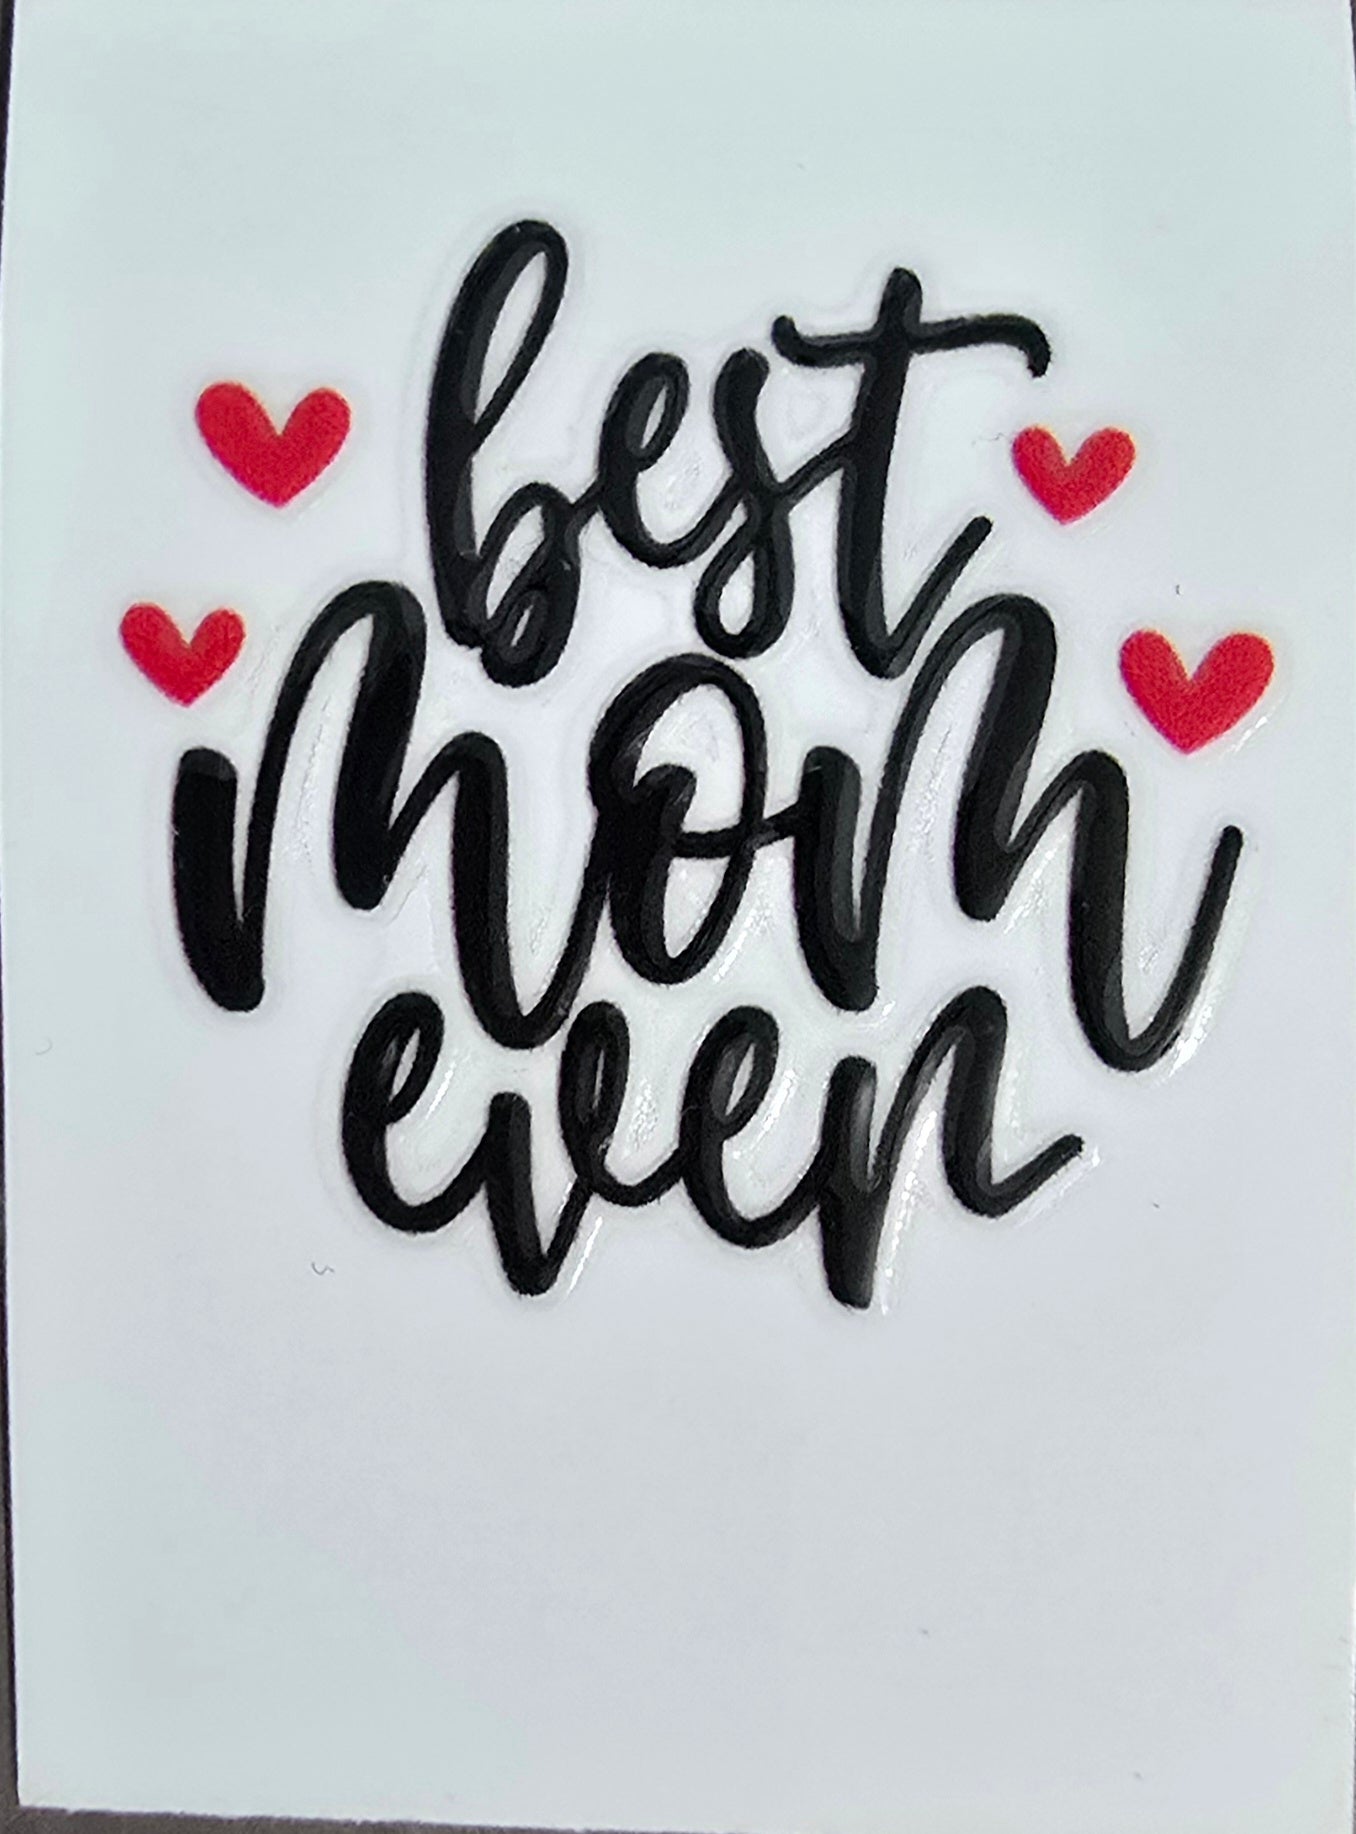 best
mom
ever